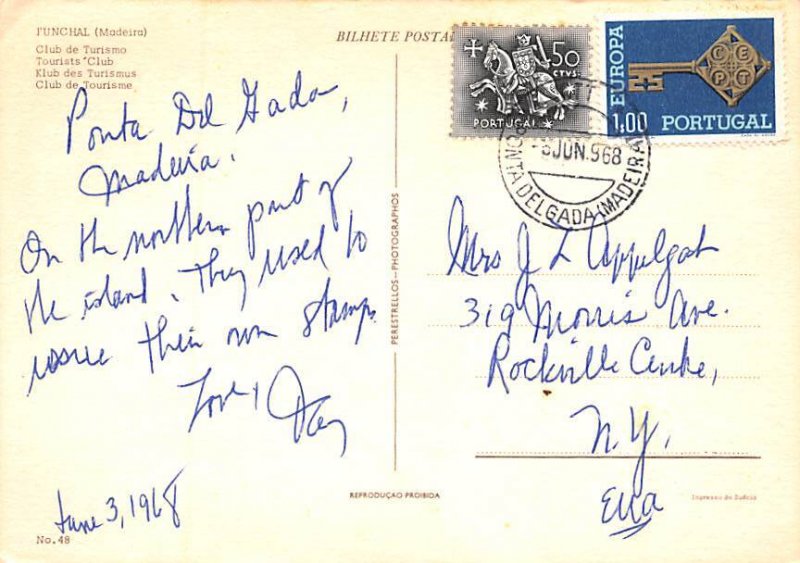 FUNCHAL (Madeira)
Club de Turismo
Tourists' Club
Klub des Turismus
Club de Tourisme
BILHETE POSTAL
50
CTVS.
PORTUGAL
EUROPA
CEPT
1.00 PORTUGAL
-5JUN.968
PONTA DELGADA (MADEIRA)
Ponta Del Gada,
Madeira.
On the northern part of
the island. They used to
issue their own stamps
Love,
June 3, 1968
No. 48
PERESTRELLOS—PHOTOGRAPHOS
Mrs J L Appelgat
319 Morris Ave.
Rockville Centre,
N.Y.
REPRODUÇÃO PROIBIDA
Impresso da Suécia